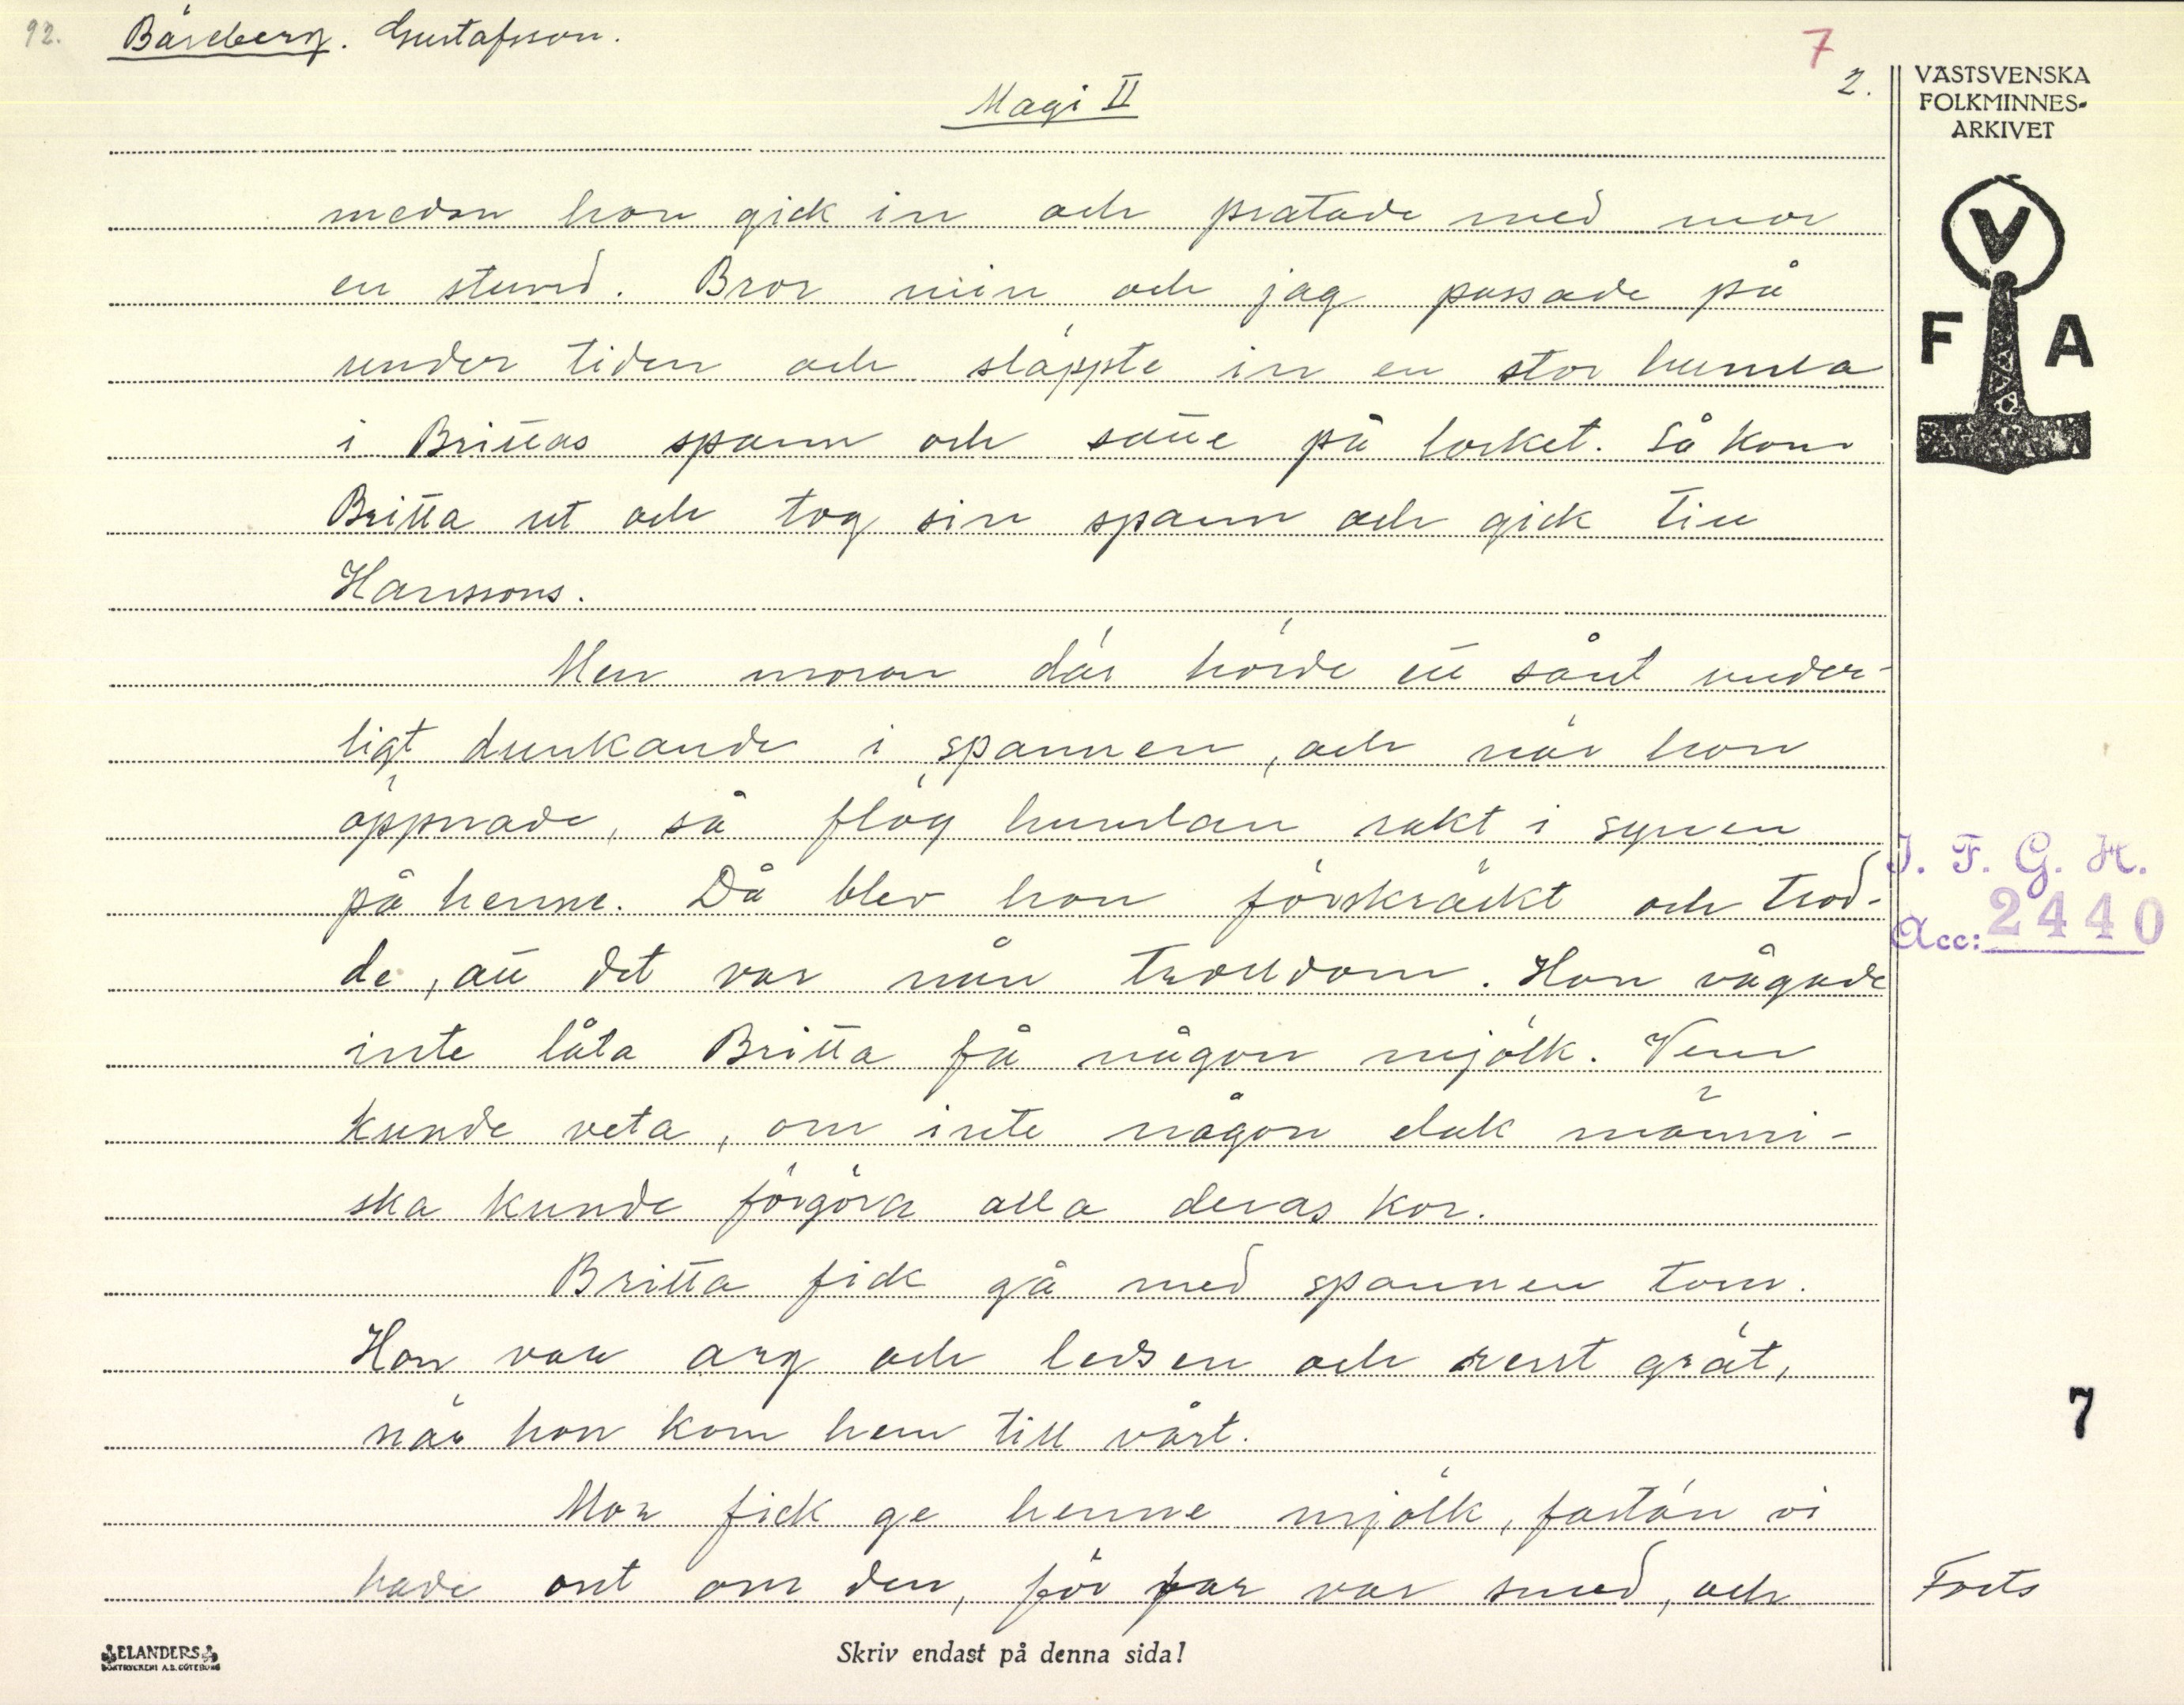 92. Bäreberg. Gustafsson.
7
2.
Magi II
VÄSTSVENSKA
FOLKMINNES-
ARKIVET
V
F A
medan hon gick in och pratade med mor
en stund. Bror min och jag passade på
under tiden och släppte in en stor humla
i Brittas spann och satte på locket. Så kom
Britta ut och tog sin spann och gick till
Hanssons.
Men moran där hörde ett sånt under-
ligt dunkande i spannen, och när hon
öppnade, så flög humlan rakt i synen
på henne. Då blev hon förskräckt och trod-
de, att det var nån trolldom. Hon vågade
inte låta Britta få någon mjölk. Vem
kunde veta, om inte någon elak männi-
ska kunde förgöra alla deras kor.
Britta fick gå med spannen tom.
Hon var arg och ledsen och rent grät,
när hon kom hem till vårt.
Mor fick ge henne mjölk, fastän vi
hade ont om den, för far var smed, och
I. F. G. H.
Acc: 2440
7
Forts
ELANDERS
BOKTRYCKERI A.B. GÖTEBORG
Skriv endast på denna sida!